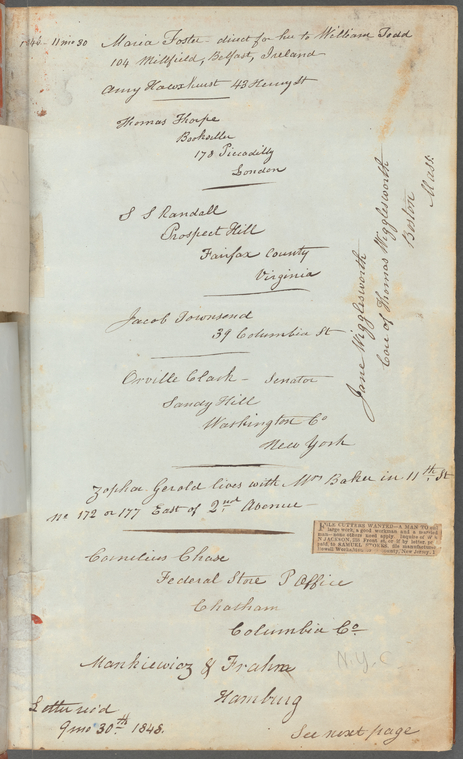 1846 - 11 mo 30 Maria Foster - direct for her to William Todd
104 Millfield, Belfast, Ireland
Amy Hawxhurst 43 Henry St
Thomas Thorpe
Bookseller
178 Piccadilly
London
S S Randall
Prospect Hill
Fairfax County
Virginia
Jacob Townsend
39 Columbia St
Orville Clark - Senator
Sandy Hill
Washington Co
New York
Zophar Gerold lives with Mrs Baker in 11th St
No 172 or 177 East of 2nd Avenue
Jane Wigglesworth
Care of Thomas Wigglesworth
Boston
Mass.
FILE CUTTERS WANTED—A MAN TO
large work, a good workman, and a
man—none others need apply. Inquire of
N JACKSON, Front st, or if by letter,
paid, to SAMUEL file manufacturer
County, New Jersey.
Cornelius Chase
Federal Store P Office
Chatham
Columbia Co
Mankiewicz & Frahm
Hamburg
N.Y.C
Letter rec'd
9 mo 30th 1848.
See next page